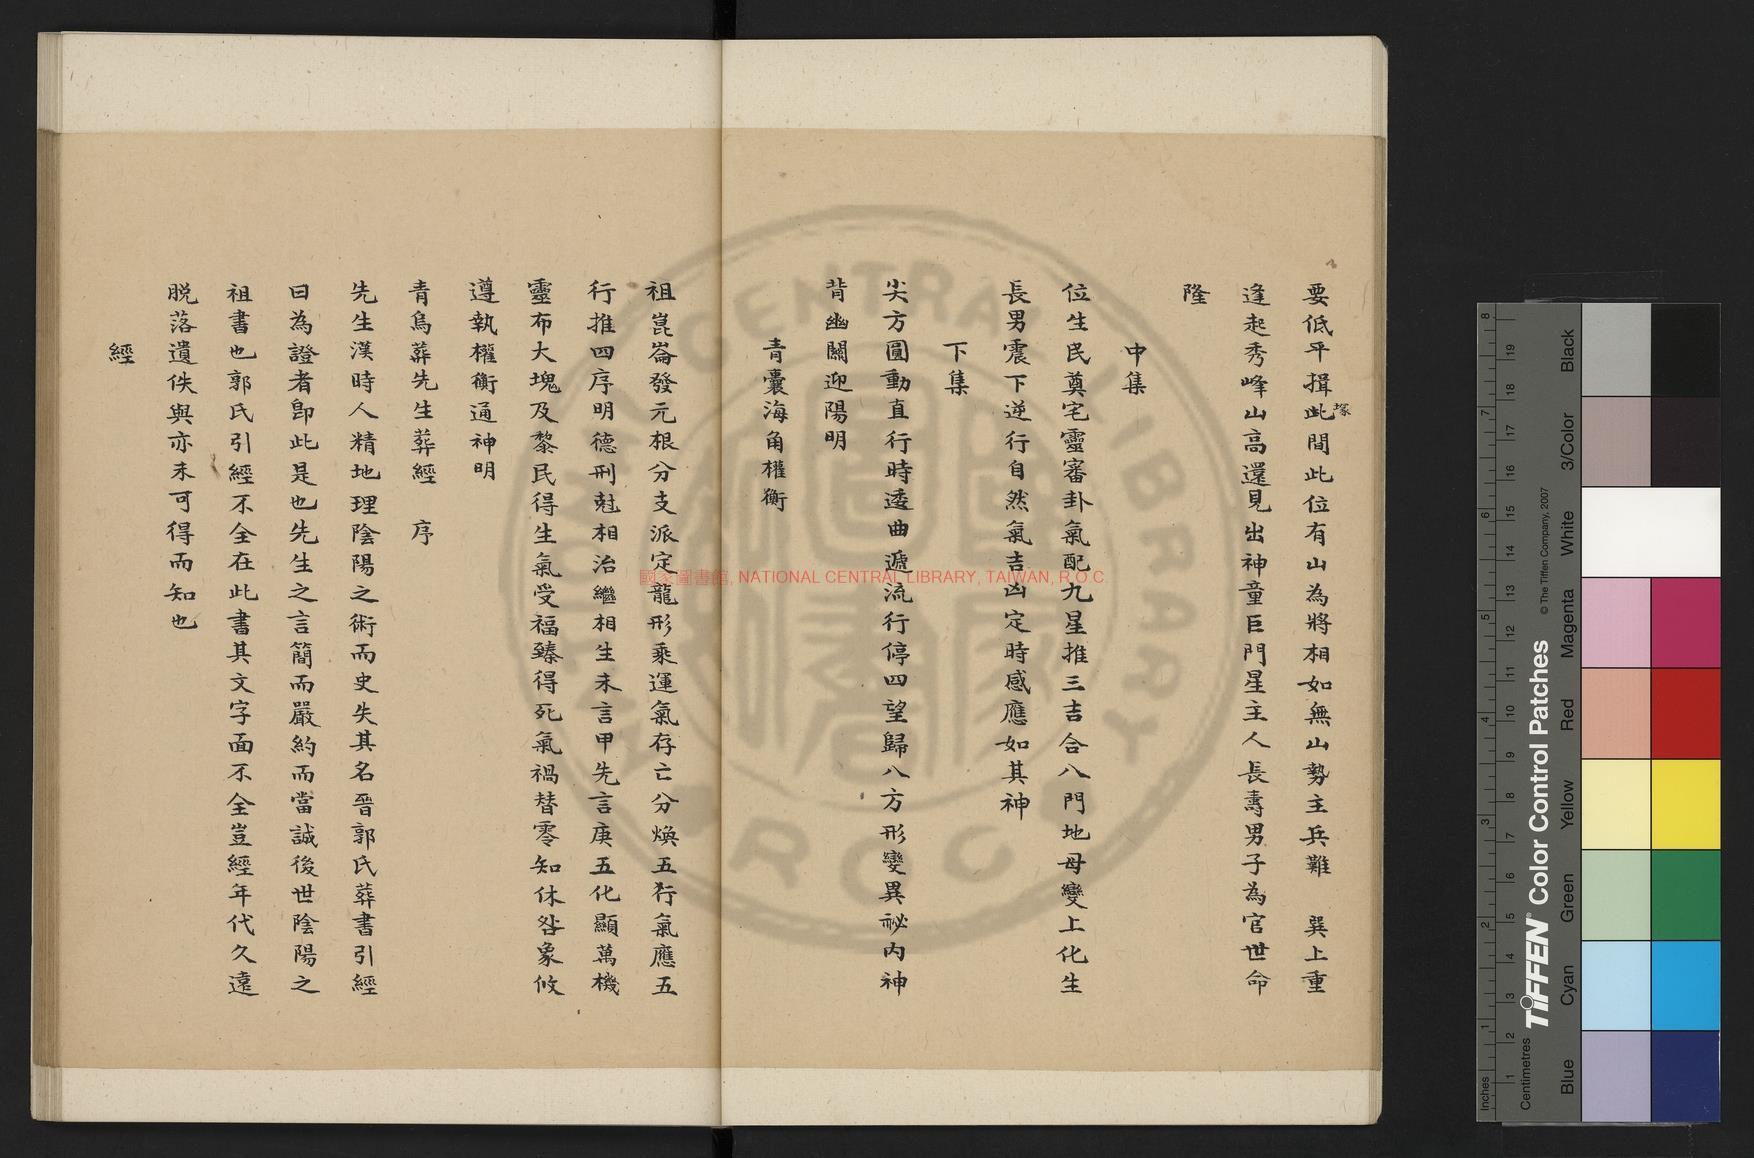 要低平揖此間此位有山為將相如無山勢主兵難　巽上重
塚
逢起秀峰山高還見出神童巨門星主人長壽男子為官世命
隆
中集
位生民奠宅靈審卦氣配九星推三吉合八門地母變上化生
長男震下逆行自然氣吉凶定時感應如其神
下集
尖方圓動直行時透曲遞流行停四望歸八方形變異祕內神
背幽關迎陽明
青囊海角權衡
祖崑崙發元根分支派定龍形乘運氣存亡分煥五行氣應五
行推四序明德刑尅相治繼相生未言甲先言庚五化顯萬機
靈布大塊及黎民得生氣受福臻得死氣禍替零知休咎象攸
遵執權衡通神明
青烏葬先生葬經　序
先生漢時人精地理陰陽之術而史失其名晉郭氏葬書引經
曰為證者即此是也先生之言簡而嚴約而當誠後世陰陽之
祖書也郭氏引經不全在此書其文字面不全豈經年代久遠
脫落遺佚與亦未可得而知也
經
國家圖書館, NATIONAL CENTRAL LIBRARY, TAIWAN, R.O.C.
NATIONAL CENTRAL LIBRARY
ROC
Inches
Centimetres
TIFFEN® Color Control Patches
© The Tiffen Company, 2007
Blue
Cyan
Green
Yellow
Red
Magenta
White
3/Color
Black